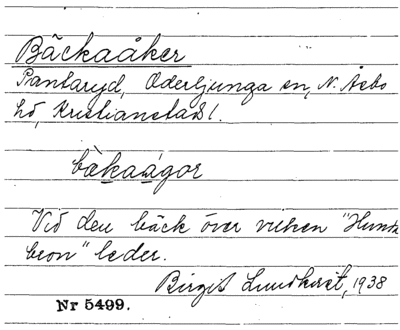 Bäckaåker
Pantaryd, Oderljunga sn, N. Åsbo
hd, Kristianstads l.
bäkaågor
Vid den bäck över vilken "Hunda
bron" leder.
Birgit Lundkvist, 1938
Nr 5499.